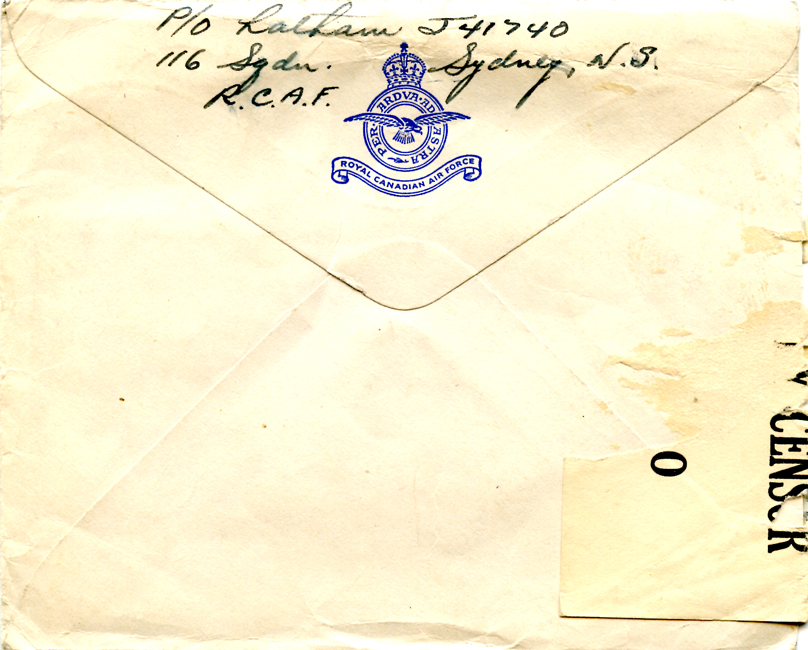 P/O Latham J41740
116 Sqdn. Sydney, N.S.
R.C.A.F.
PER · ARDVA · AD ASTRA
ROYAL CANADIAN AIR FORCE
O